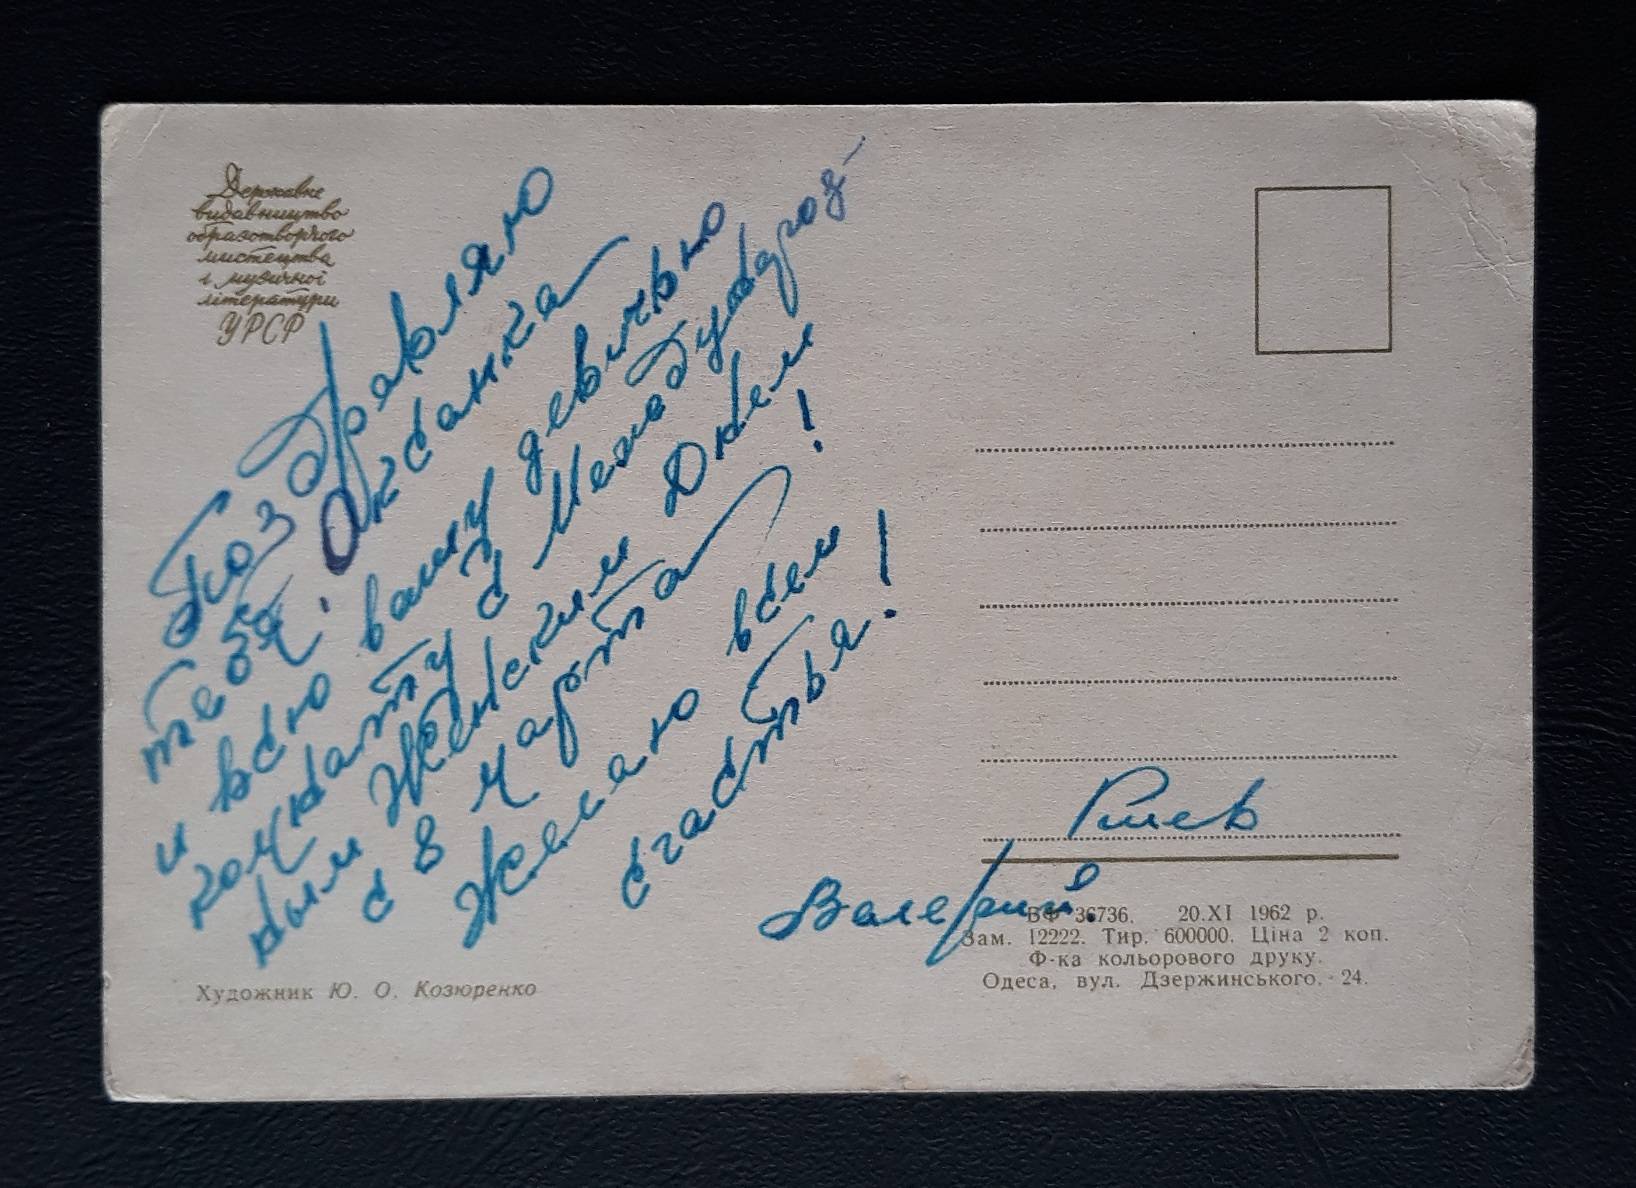 Державне
видавництво
образотворчого
мистецтва
і музичної
літератури
УРСР
Поздравляю
тебя, Оксанка
и всю вашу девичью
комнату с Международ-
ным Женским Днем
с 8 марта!
Желаю всем
счастья!
Киев
Валерий.
ВФ 36736. 20.XI 1962 р.
Зам. 12222. Тир. 600000. Ціна 2 коп.
Ф-ка кольорового друку.
Одеса, вул. Дзержинського, 24.
Художник Ю. О. Козюренко